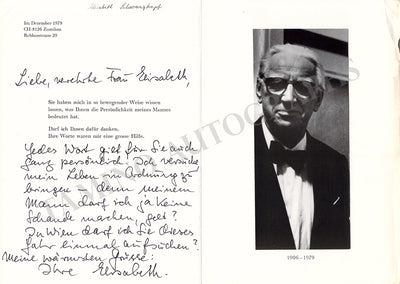 Elisabeth Schwarzkopf
Im Dezember 1979
CH-8126 Zumikon
Rebhusstrasse 29
Liebe, verehrte Frau Elisabeth,
Sie haben mich in so bewegender Weise wissen
lassen, was Ihnen die Persönlichkeit meines Mannes
bedeutet hat.
Darf ich Ihnen dafür danken.
Ihre Worte waren mir eine grosse Hilfe.
Jedes Wort gilt für Sie auch
ganz persönlich. Ich versuche
mein Leben in Ordnung zu
bringen – denn meinem
Mann darf ich ja keine
Schande machen, gelt?
In Wien darf ich Sie dieses
Jahr einmal aufsuchen?
Meine wärmsten Grüsse:
Ihre Elisabeth.
1906–1979
TAMINO AUTOGRAPHS